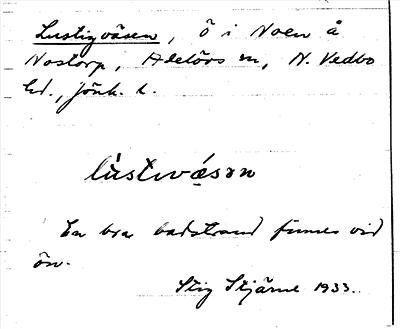 Lustigväsen, ö i Noen å
Nostorp, Adelövs sn, N. Vedbo
hd., Jönk. l.
lùstıvä́sən
En bra badstrand finnes vid
ön.
Stig Stjärne 1933.